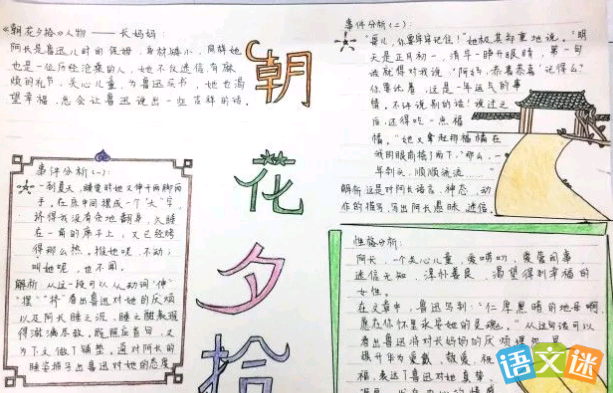 《朝花夕拾》人物——长妈妈:
阿长是鲁迅儿时的保姆,身材矮小,
也是一位历经沧桑的人,她不仅迷信,有麻
烦的礼节,关心儿童,为鲁迅买书,她也渴
望幸福,总会让鲁迅说出一些吉祥的话。
事件分析(一):
一到夏天,睡觉时她又伸开两脚两
手,在床中间摆成一个“大”字,
挤得我没有余地翻身,久睡
在一角的席子上,又已经烤
得那么热。推她呢,不动;
叫她呢,也不闻。
解析 从这一段可以从动词“伸”
“摆”“挤”看出鲁迅对她的厌烦
以及阿长睡之沉,睡之酣展现
得淋漓尽致,既照应首句,又
为下文做了铺垫,通过对阿长的
睡姿描写出鲁迅对她的态度
朝
花
夕
拾
事件分析(二):
“哥儿,你要牢牢记住!”她极其郑重地说。“明
天是正月初一,清早一睁开眼睛,第一句
话就得对我说:“阿妈,恭喜恭喜!记得么?
你要记着,这是一年运气的事
情。不许说别的话!说过之
后,还得吃一点福
橘。”她又拿起那福橘在
我的眼前摇了两下,“那么,一
年到头,顺顺流流……”
解析 这是对阿长语言,神态,动
作的描写,写出阿长愚昧,迷信。
性格分析:
阿长,一个关心儿童,爱唠叨,爱管闲事
迷信无知,淳朴善良,渴望得到幸福的
女性。
在文章中,鲁迅写到:“仁厚黑暗的地母啊,
愿在你怀里永安她的灵魂。”从这句话可以
看出鲁迅将对长妈妈的厌烦
升华为爱戴,敬爱,祝
福,表达了鲁迅对她真挚,
语文迷